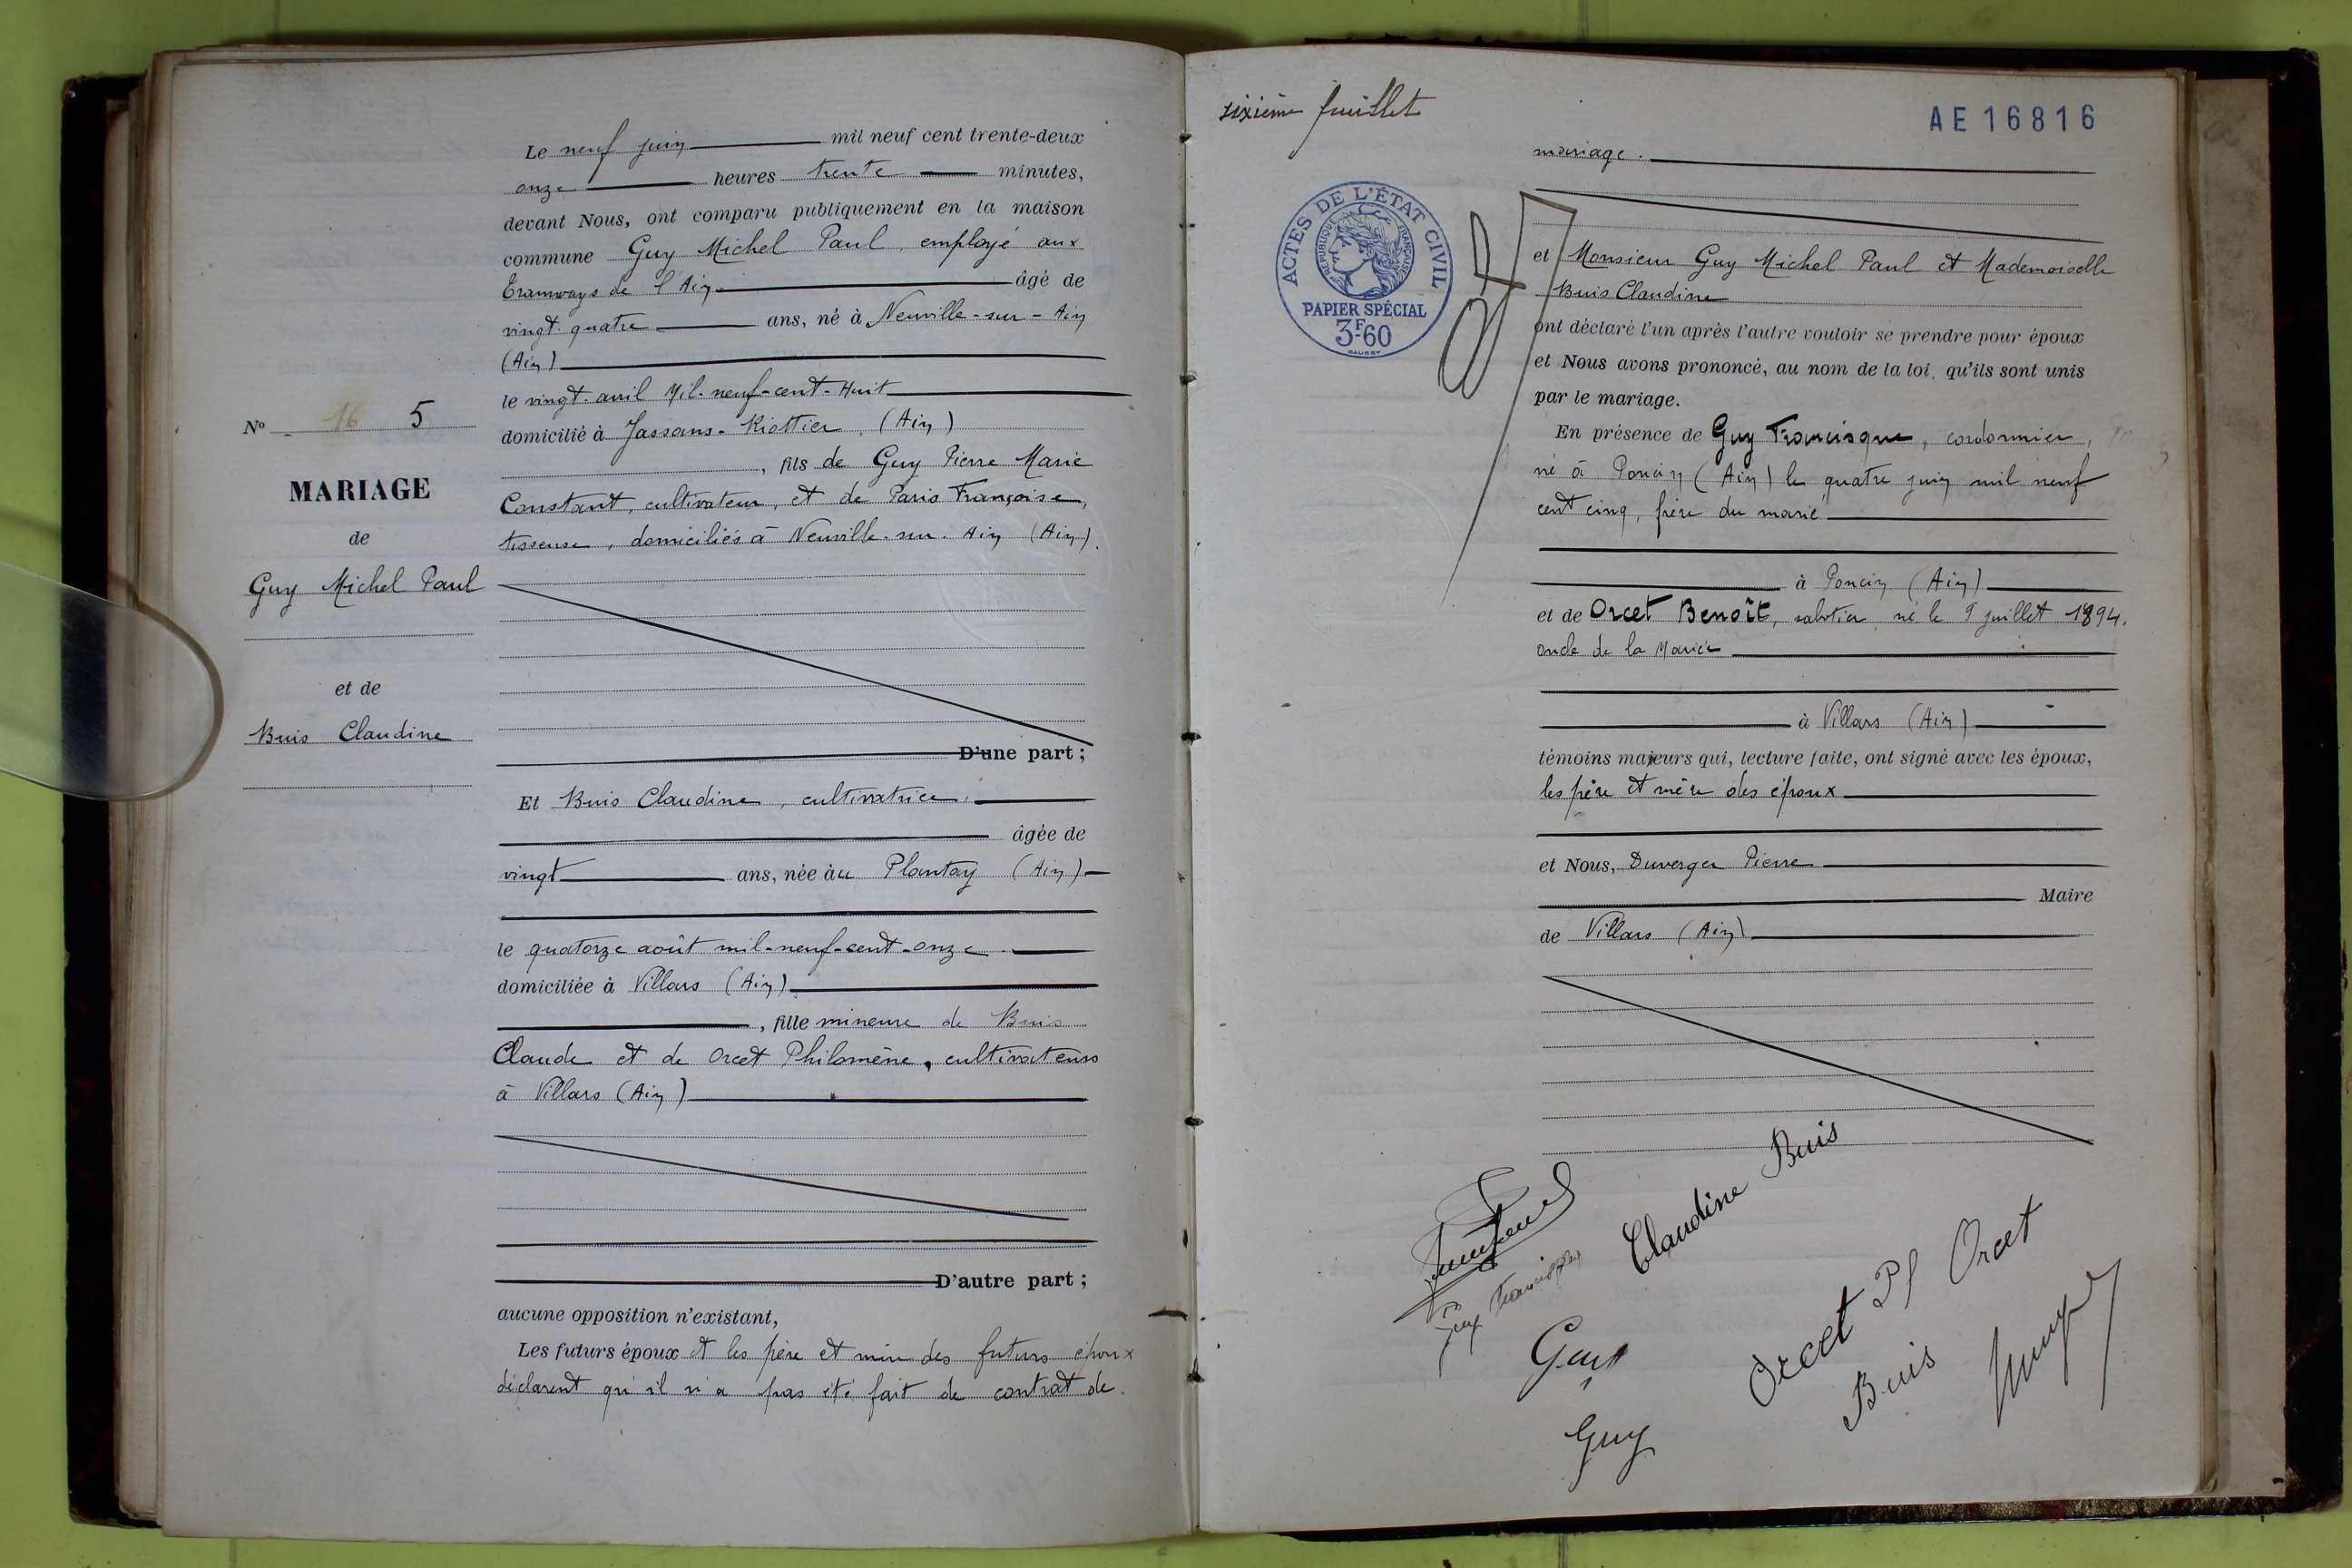 Le neuf juin mil neuf cent trente-deux
onze heures trente minutes,
devant Nous, ont comparu publiquement en la maison
commune Guy Michel Paul employé aux
Tramways de l'Ain âgé de
vingt-quatre ans, né à Neuville-sur-Ain
(Ain)
le vingt-avril Mil-neuf-cent-Huit
domicilié à Jassans-Riottier (Ain)
, fils de Guy Pierre Marie
Constant, cultivateur, et de Paris Françoise,
tisseuse, domiciliés à Neuville-sur-Ain (Ain).
D'une part ;
Et Buis Claudine, cultivatrice,
âgée de
vingt ans, née àu Plantay (Ain)
le quatorze août mil-neuf-cent-onze
domiciliée à Villars (Ain)
, fille mineure de Buis
Claude et de Orcet Philomène, cultivateurs
à Villars (Ain)
D'autre part ;
aucune opposition n'existant,
Les futurs époux et les père et mère des futurs époux
déclarent qu'il n'a pas été fait de contrat de
No 16 5
MARIAGE
de
Guy Michel Paul
et de
Buis Claudine
sixième feuillet
AE16816
ACTES DE L'ÉTAT CIVIL
RÉPUBLIQUE FRANÇAISE
PAPIER SPÉCIAL
3F60
mariage.
et Monsieur Guy Michel Paul et Mademoiselle
Buis Claudine
ont déclaré l'un après l'autre vouloir se prendre pour époux
et Nous avons prononcé, au nom de la loi, qu'ils sont unis
par le mariage.
En présence de Guy Francisque, cordonnier,
né à Poncin (Ain) le quatre juin mil neuf
cent cinq, frère du marié
à Poncin (Ain)
et de Orcet Benoît, sabotier né le 9 juillet 1894.
oncle de la Mariée
à Villars (Ain)
témoins majeurs qui, lecture faite, ont signé avec les époux,
les père et mère des époux
et Nous, Duverger Pierre
Maire
de Villars (Ain)
Claudine Buis
Guy Francisque
Guy
Orcet Ph Orcet
Buis
Guy